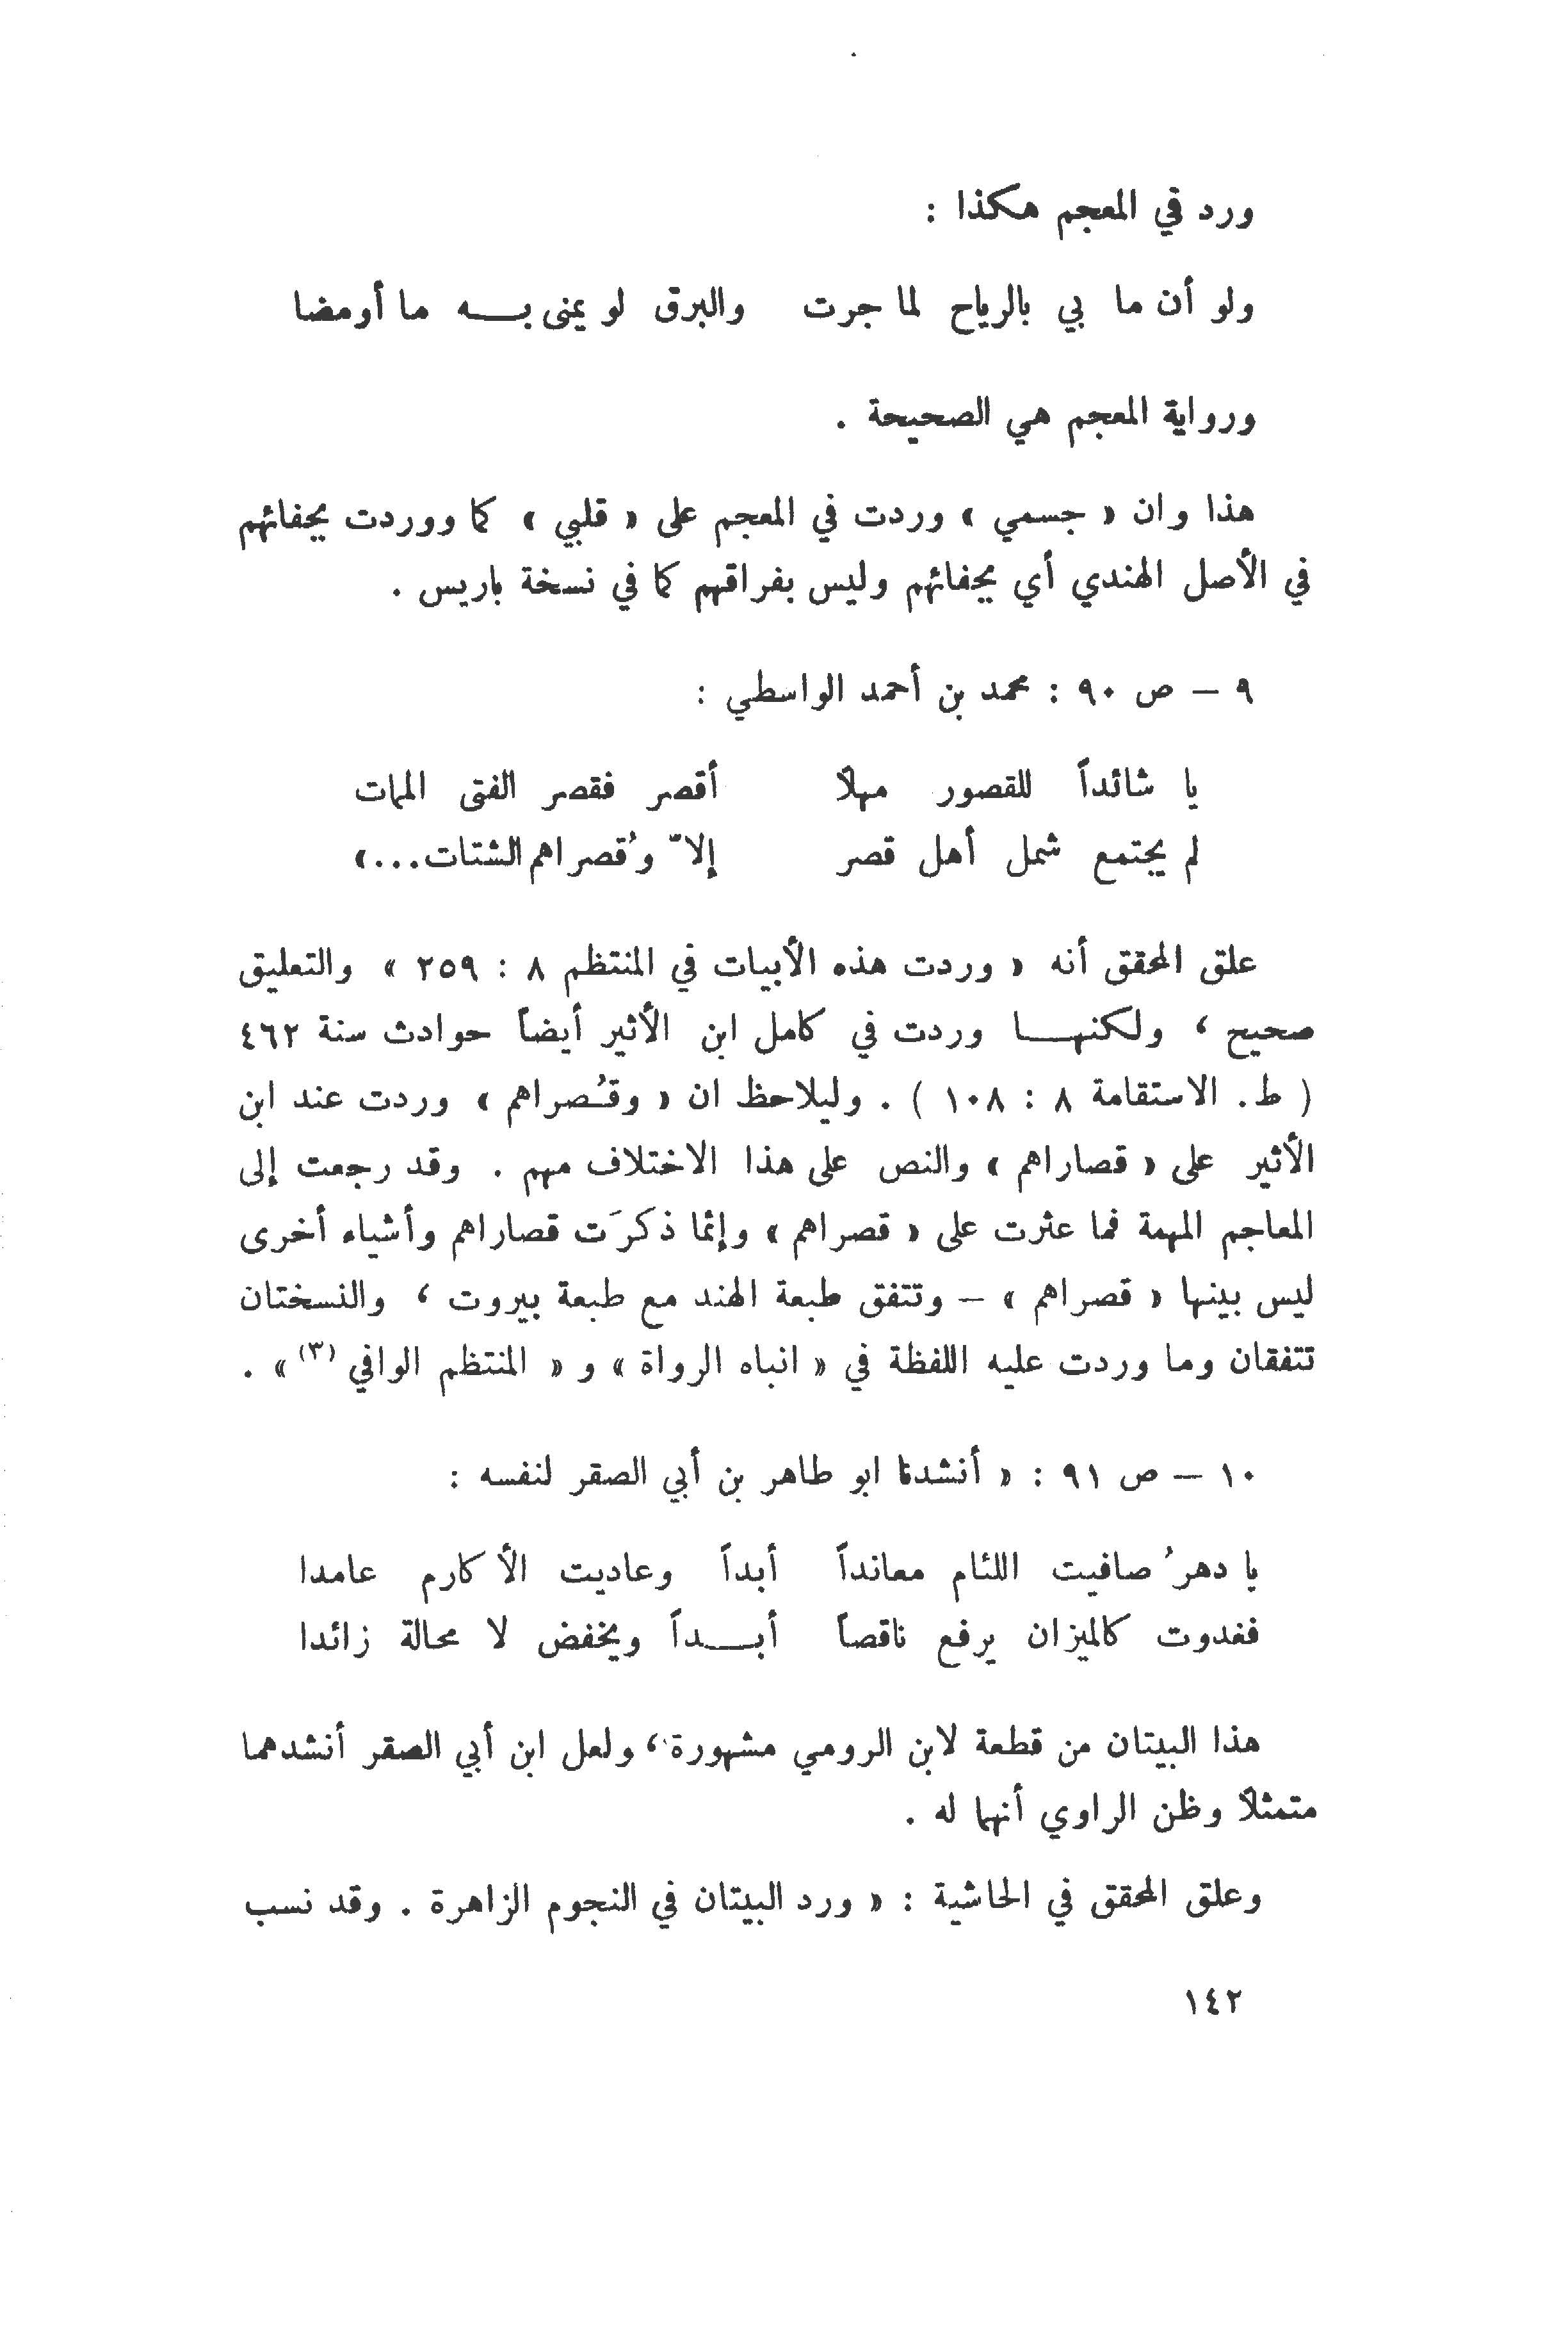 ورد في المعجم هكذا :
ولو أن ما بي بالرياح لما جرت والبرق لو يمنى بـــه ما أومضا
ورواية المعجم هي الصحيحة .
هذا وان « جسمي » وردت في المعجم على « قلبي » كما ووردت بجفائهم
في الأصل الهندي أي بجفائهم وليس بفراقهم كما في نسخة باريس .
٩ – ص ٩٠ : محمد بن أحمد الواسطي :
يا شائداً للقصور مهلاً أقصر فقصر الفتى الممات
لم يجتمع شمل أهل قصر إلاّ وقُصراهم الشتات...»
علق المحقق أنه « وردت هذه الأبيات في المنتظم ٨ : ٢٥٩ » والتعليق
صحيح ، ولكنهـــا وردت في كامل ابن الأثير أيضاً حوادث سنة ٤٦٢
( ط . الاستقامة ٨ : ١٠٨ ) . وليلاحظ ان « وقُـصراهم » وردت عند ابن
الأثير على « قصاراهم » والنص على هذا الاختلاف مهم . وقد رجعت إلى
المعاجم المهمة فما عثرت على « قصراهم » وإنما ذكرَت قصاراهم وأشياء أخرى
ليس بينها « قصراهم » – وتتفق طبعة الهند مع طبعة بيروت ، والنسختان
تتفقان وما وردت عليه اللفظة في « انباه الرواة » و « المنتظم الوافي (٣) » .
١٠ – ص ٩١ : « أنشدنا ابو طاهر بن أبي الصقر لنفسه :
يا دهرُ صافيت اللئام معانداً أبداً وعاديت الأكارم عامدا
فغدوت كالميزان يرفع ناقصاً أبـــداً ويخفض لا محالة زائدا
هذا البيتان من قطعة لابن الرومي مشهورة ، ولعل ابن أبي الصقر أنشدهما
متمثلاً وظن الراوي أنهما له .
وعلق المحقق في الحاشية : « ورد البيتان في النجوم الزاهرة . وقد نسب
١٤٢